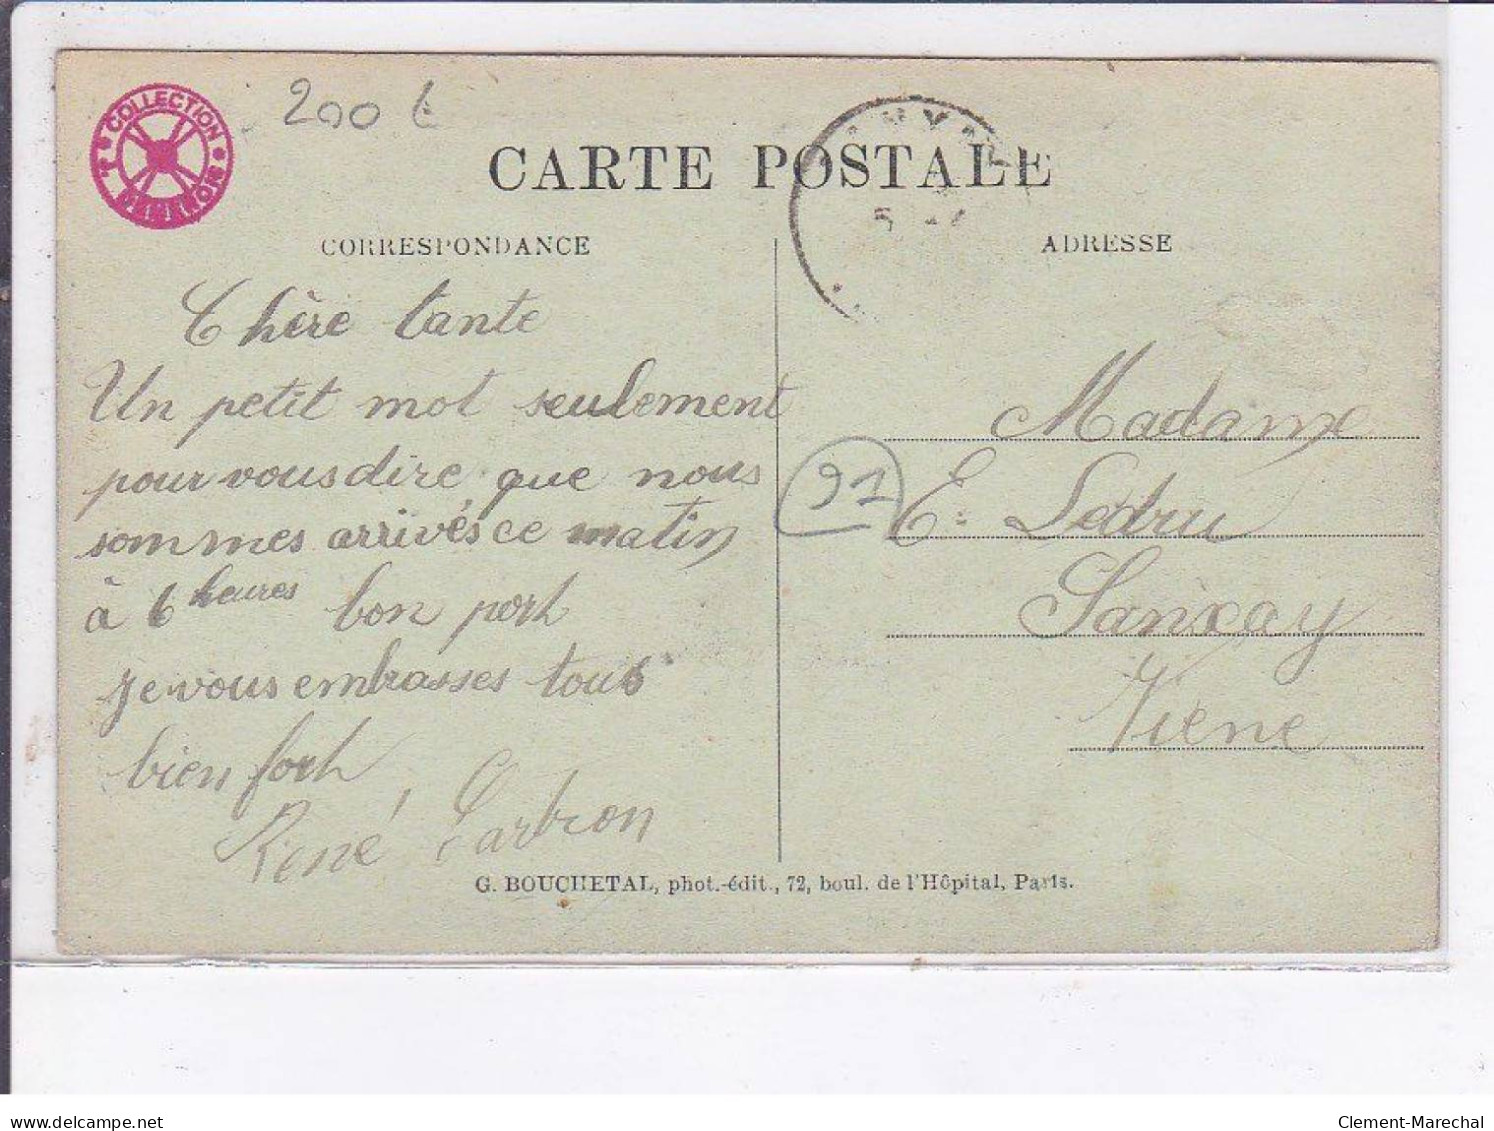 COLLECTION
200
CARTE POSTALE
5
CORRESPONDANCE
ADRESSE
Chère tante
Un petit mot seulement
pour vous dire que nous
sommes arrivés ce matin
à 6 heures bon port
je vous embrasses tous
bien fort
René Carbron
91
Madame
E. Ledru
Sanxay
Viene
G. BOUCHETAL, phot.-édit., 72, boul. de l'Hôpital, Paris.
delcampe.net
Clement-Marechal